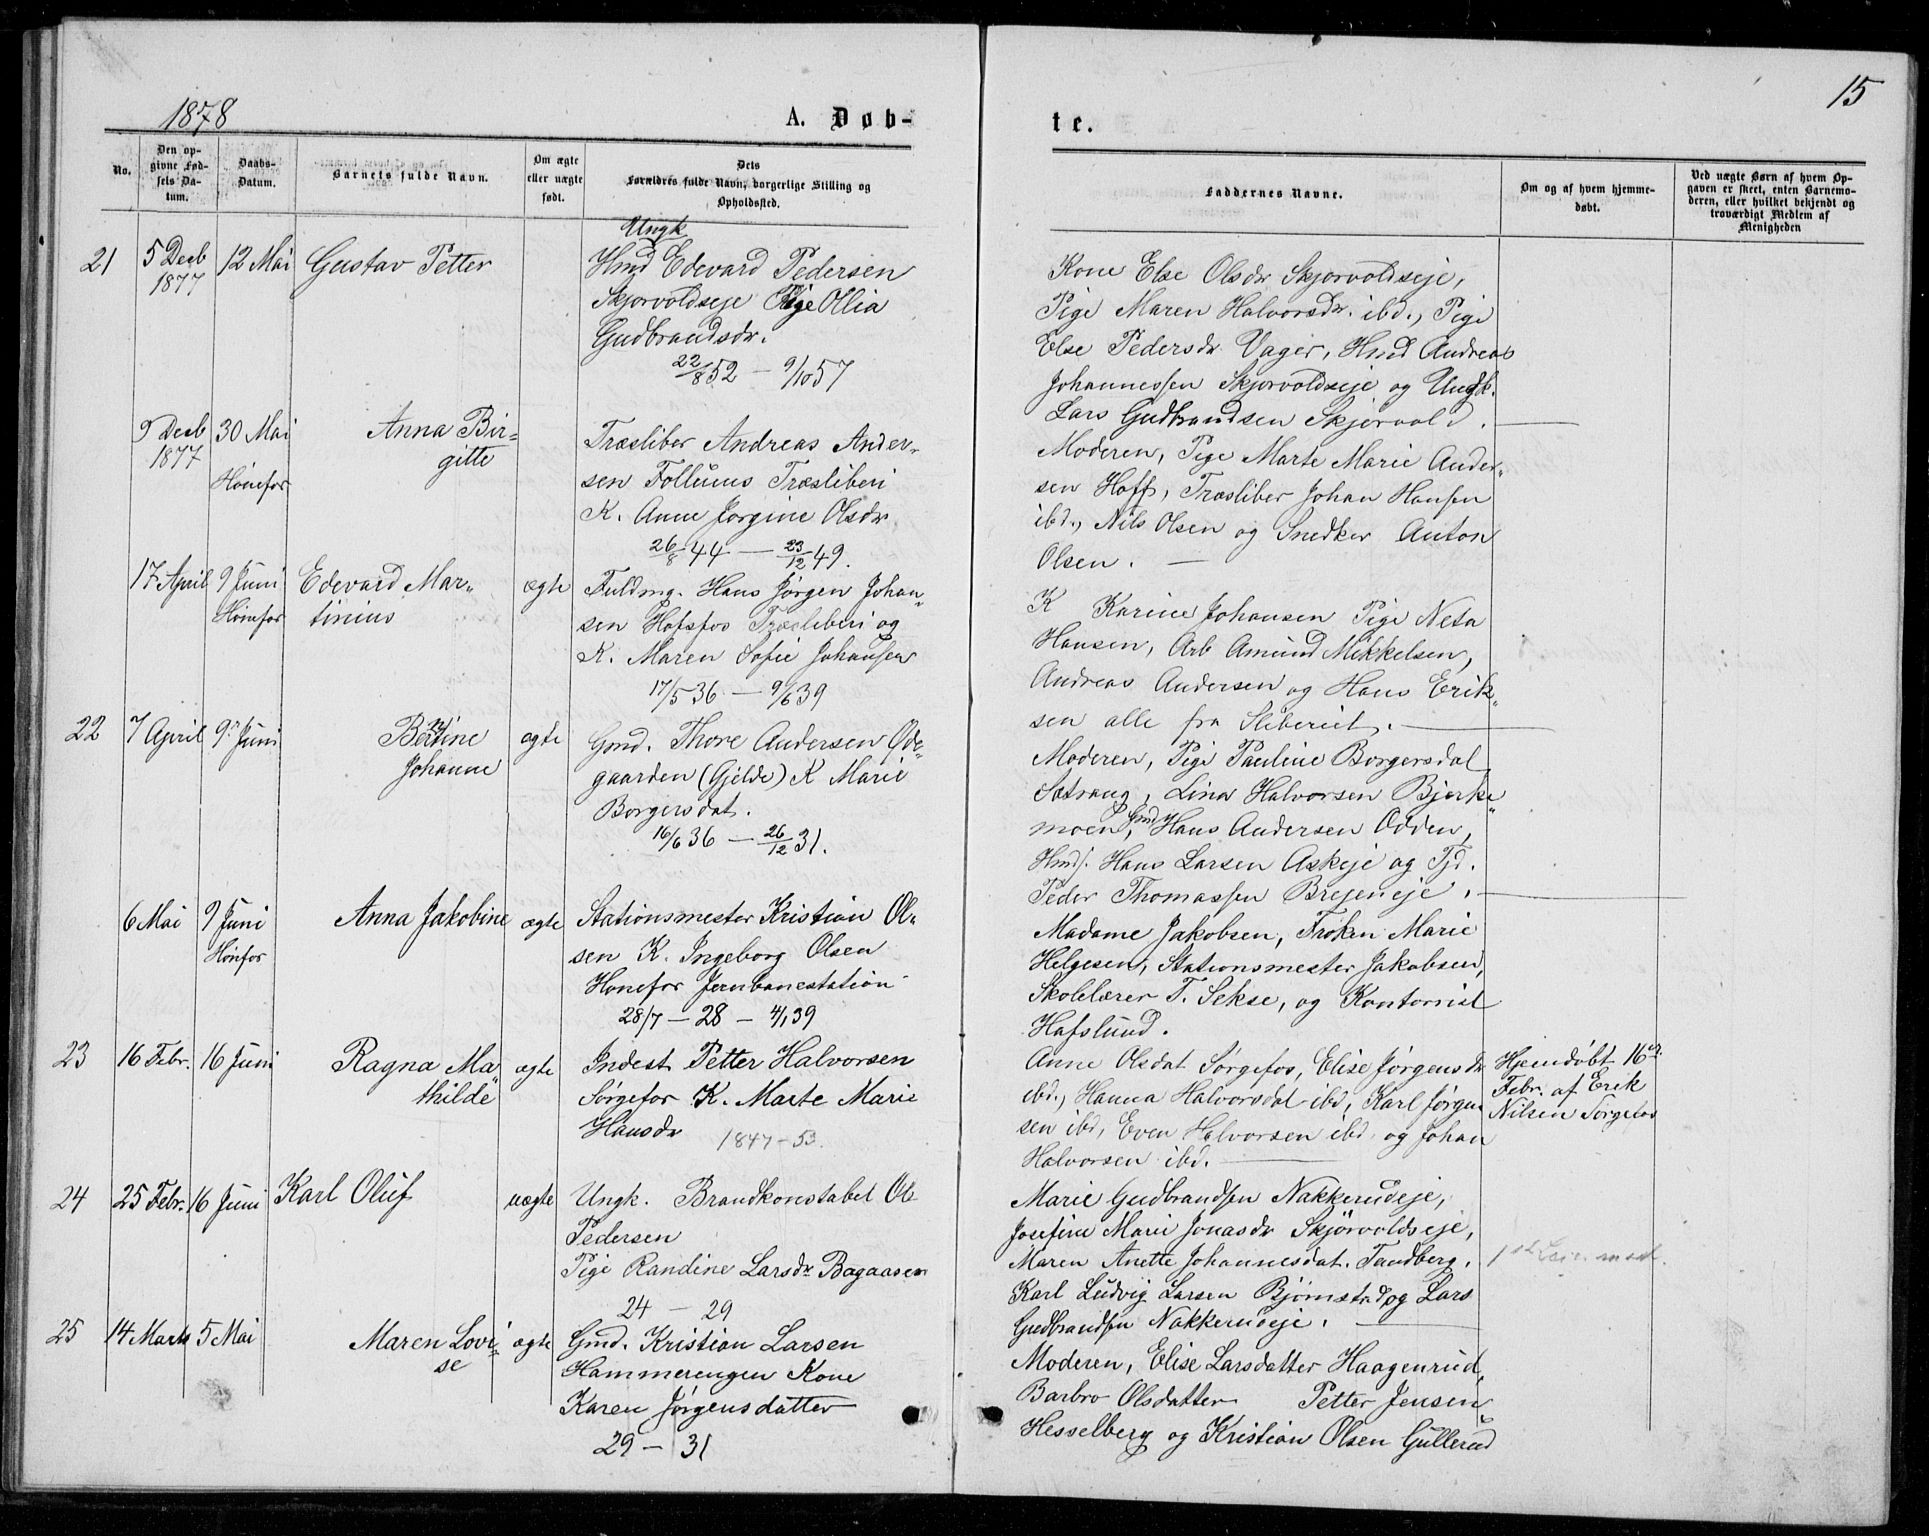 1878
A. Døb-
te.
15
No.
Den op-
givne Fød-
sels Da-
tum.
Daabs-
Datum.
Barnets fulde Navn.
Om ægte
eller uægte
født.
Dets
Forældres fulde Navn, borgerlige Stilling og
Opholdssted.
Faddernes Navne.
Om og af hvem hjemme-
døbt.
Ved uægte Børn af hvem Op-
gaven er skeet, enten Barnemo-
deren, eller hvilket bekjendt og
troværdigt Medlem af
Menigheden
21
5 Decb
1877
12 Mai
Gustav Petter
Ungk
Hmd Edevard Pedersen
Skjorvoldseje Pige Ollia
Gudbrandsdr.
22/8 52 – 9/10 57
Kone Else Olsdr Skjorvoldseje,
Pige Maren Halvorsdr. ibd., Pige
Else Pedersdr Vager, Hmd Andreas
Johannessen Skjorvoldseje og Ungk.
Lars Gudbrandsen Skjorvold.
9 Decb
1877
30 Mai
Hønefos
Anna Bir=
gitte
Træsliber Andreas Ander-
sen Follums Træsliberi
K. Anne Jorgine Olsdr
26/8 44 — 23/12 49.
Moderen, Pige Marte Marie Ander-
sen Hoff, Træsliber Johan Hansen
ibd., Nils Olsen og Snedker Anton
Olsen. —
17 April
9 Juni
Hønefos
Edevard Mar-
tinius
ægte
Fuldmg. Hans Jørgen Johan-
sen Hofsfos Træsliberi og
K. Maren Sofie Johansen
17/5 36 — 9/6 39
K Karine Johansen Pige Neta
Hansen, Arb Amund Mikkelsen,
Andreas Andersen og Hans Erik-
sen alle fra Sliberiet.
22
7 April
9 Juni
Bertine
Johanne
ægte
Gmd. Thore Andersen Øde-
gaarden (Gjelde) K Marie
Borgersdat.
16/6 36 — 26/12 31.
Moderen, Pige Pauline Borgersdal
Sætrang, Lina Halvorsen Bjerke
moen, Gmd Hans Andersen Odden,
Hmd. Hans Larsen Askeje og Tjd.
Peder Thomassen Brejeneje.
6 Mai
9 Juni
Hønfos
Anna Jakobine
ægte
Stationsmester Kristian Ol-
sen K. Ingeborg Olsen
Honefos Jernbanestation
28/7 – 28 – 4/1 39
Madame Jakobsen, Frøken Marie
Helgesen, Stationsmester Jakobsen,
Skolelærer T. Sekse, og Kontorist
Hafslund.
23
16 Febr.
16 Juni
Ragna Ma
thilde
ægte
Indest Petter Halvorsen
Sørgefos K. Marte Marie
Hansdr
1847 – 53.
Anne Olsdat Sørgefos, Elise Jørgensdr
ibd., Hanna Halvorsdal ibd, Karl Jørgen
sen ibd, Even Halvorsen ibd. og Johan
Halvorsen ibd.
Hjemdøbt 16de
Febr. af Erik
Nilsen Sørgefos
24
25 Febr.
16 Juni
Karl Oluf
uægte
Ungk. Brandkonstabel Ol
Pedersen
Pige Randine Larsdr Bagaasen
24 – 29
Marie Gudbrandsen Nakkerudeje,
Josefine Marie Jonasdr Skjörvoldseje,
Maren Anette Johannesdat. Tandberg.
Karl Ludvig Larsen Bjørnstad og Lars
Gudbrandsen Nakkerudeje.
25
14 Marts
5 Mai
Maren Lovi
se
ægte
Gmd. Kristian Larsen
Hammerengen Kone
Karen Jørgensdatter
29 – 31
Moderen, Elise Larsdatter Haagenrud,
Barbro Olsdatter Petter Jensen
Hesselberg og Kristian Olsen Gullerud